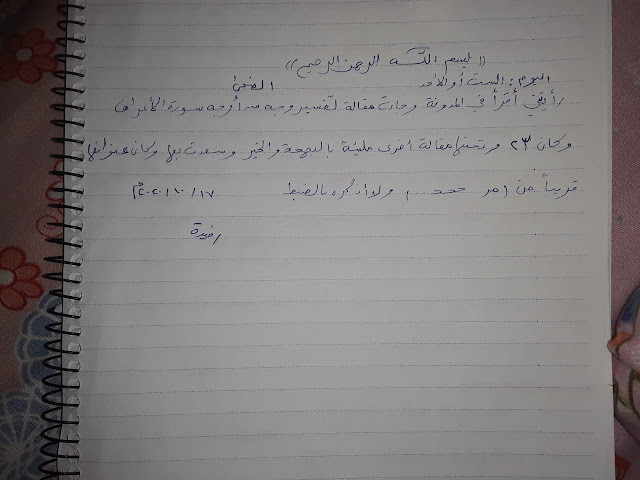 ((بسم الله الرحمن الرحيم))
اليوم: السبت أو الأحد الضحى
رأيتني أقرأ في المدونة وجاءت مقالة لتفسير وجه من أوجه سورة الأعراف
وكان ٢٣ وتحتها مقالة أخرى مليئة بالبهجة والخير وسعدت بها وكان عنوانها
قريباً من (مر ... ) ولا أذكره بالضبط ١٧/١٠/٢٠٢٠م
رفيدة